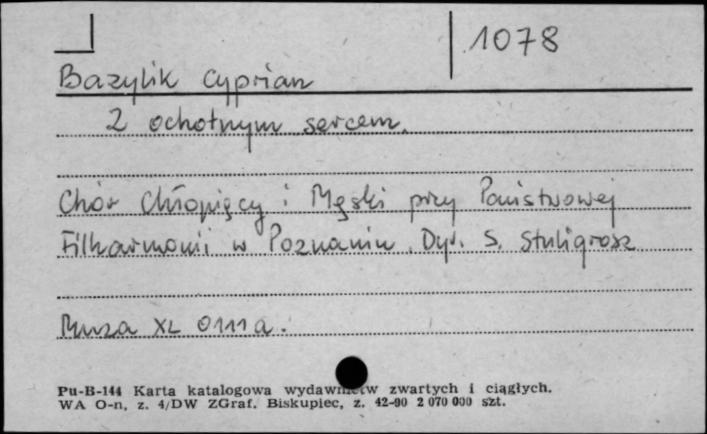 1078
Bazylik Cyprian
Z ochotnym sercem.
Chór Chłopięcy i Męski przy Państwowej
Filharmonii w Poznaniu. Dyr. S. Stuligrosz
Muza XL 0111 a.
Pu-B-144 Karta katalogowa wydawnictw zwartych i ciągłych.
WA O-n, z. 4/DW ZGraf. Biskupiec, z. 42-90 2 070 000 szt.